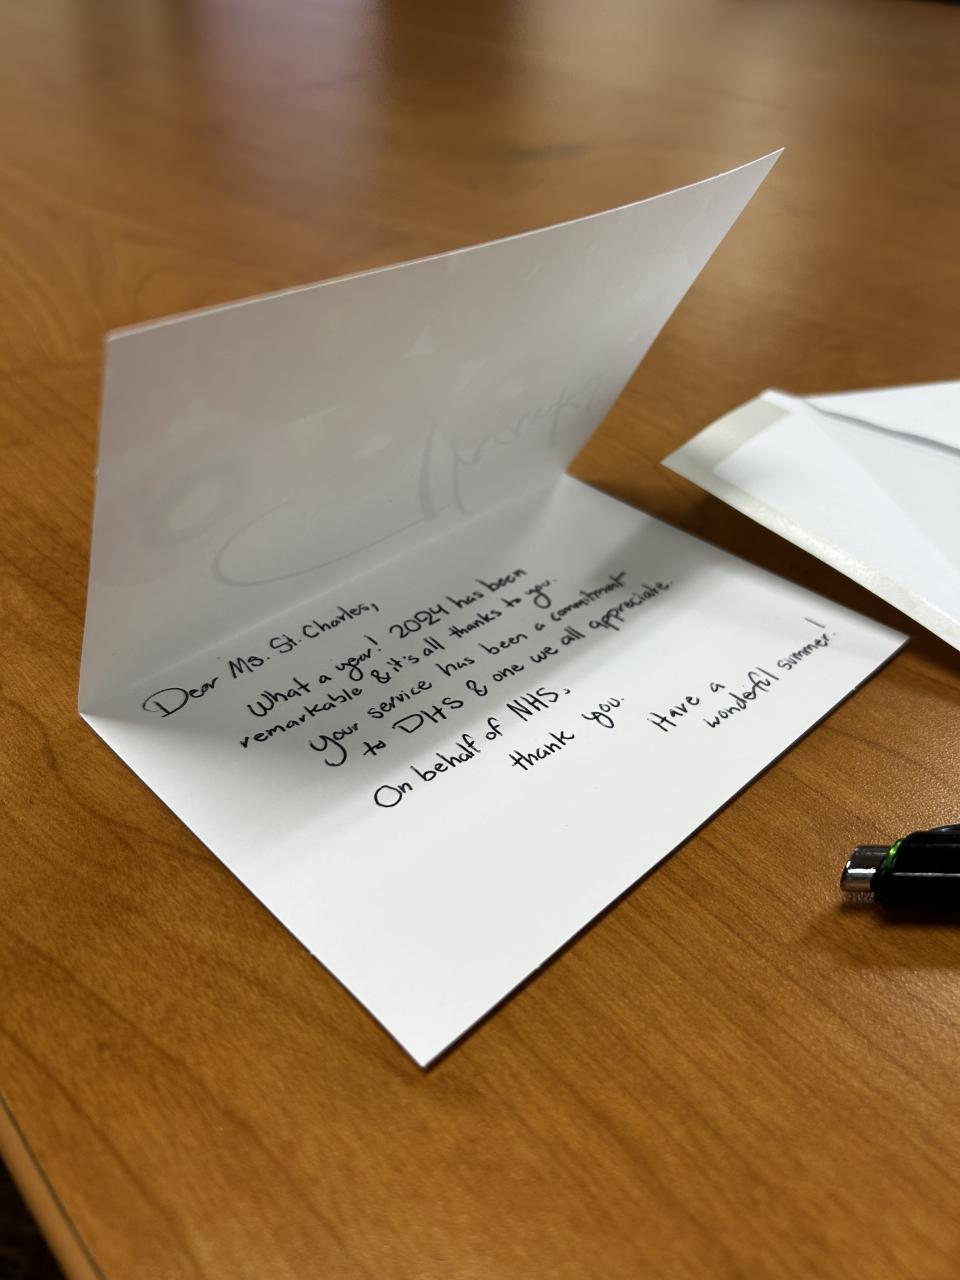 Dear Ms. St. Charles,
What a year! 2024 has been
remarkable & it's all thanks to you.
Your service has been a commitment
to DHS & one we all appreciate.
On behalf of NHS,
thank you.
Have a
wonderful summer!
Thanks